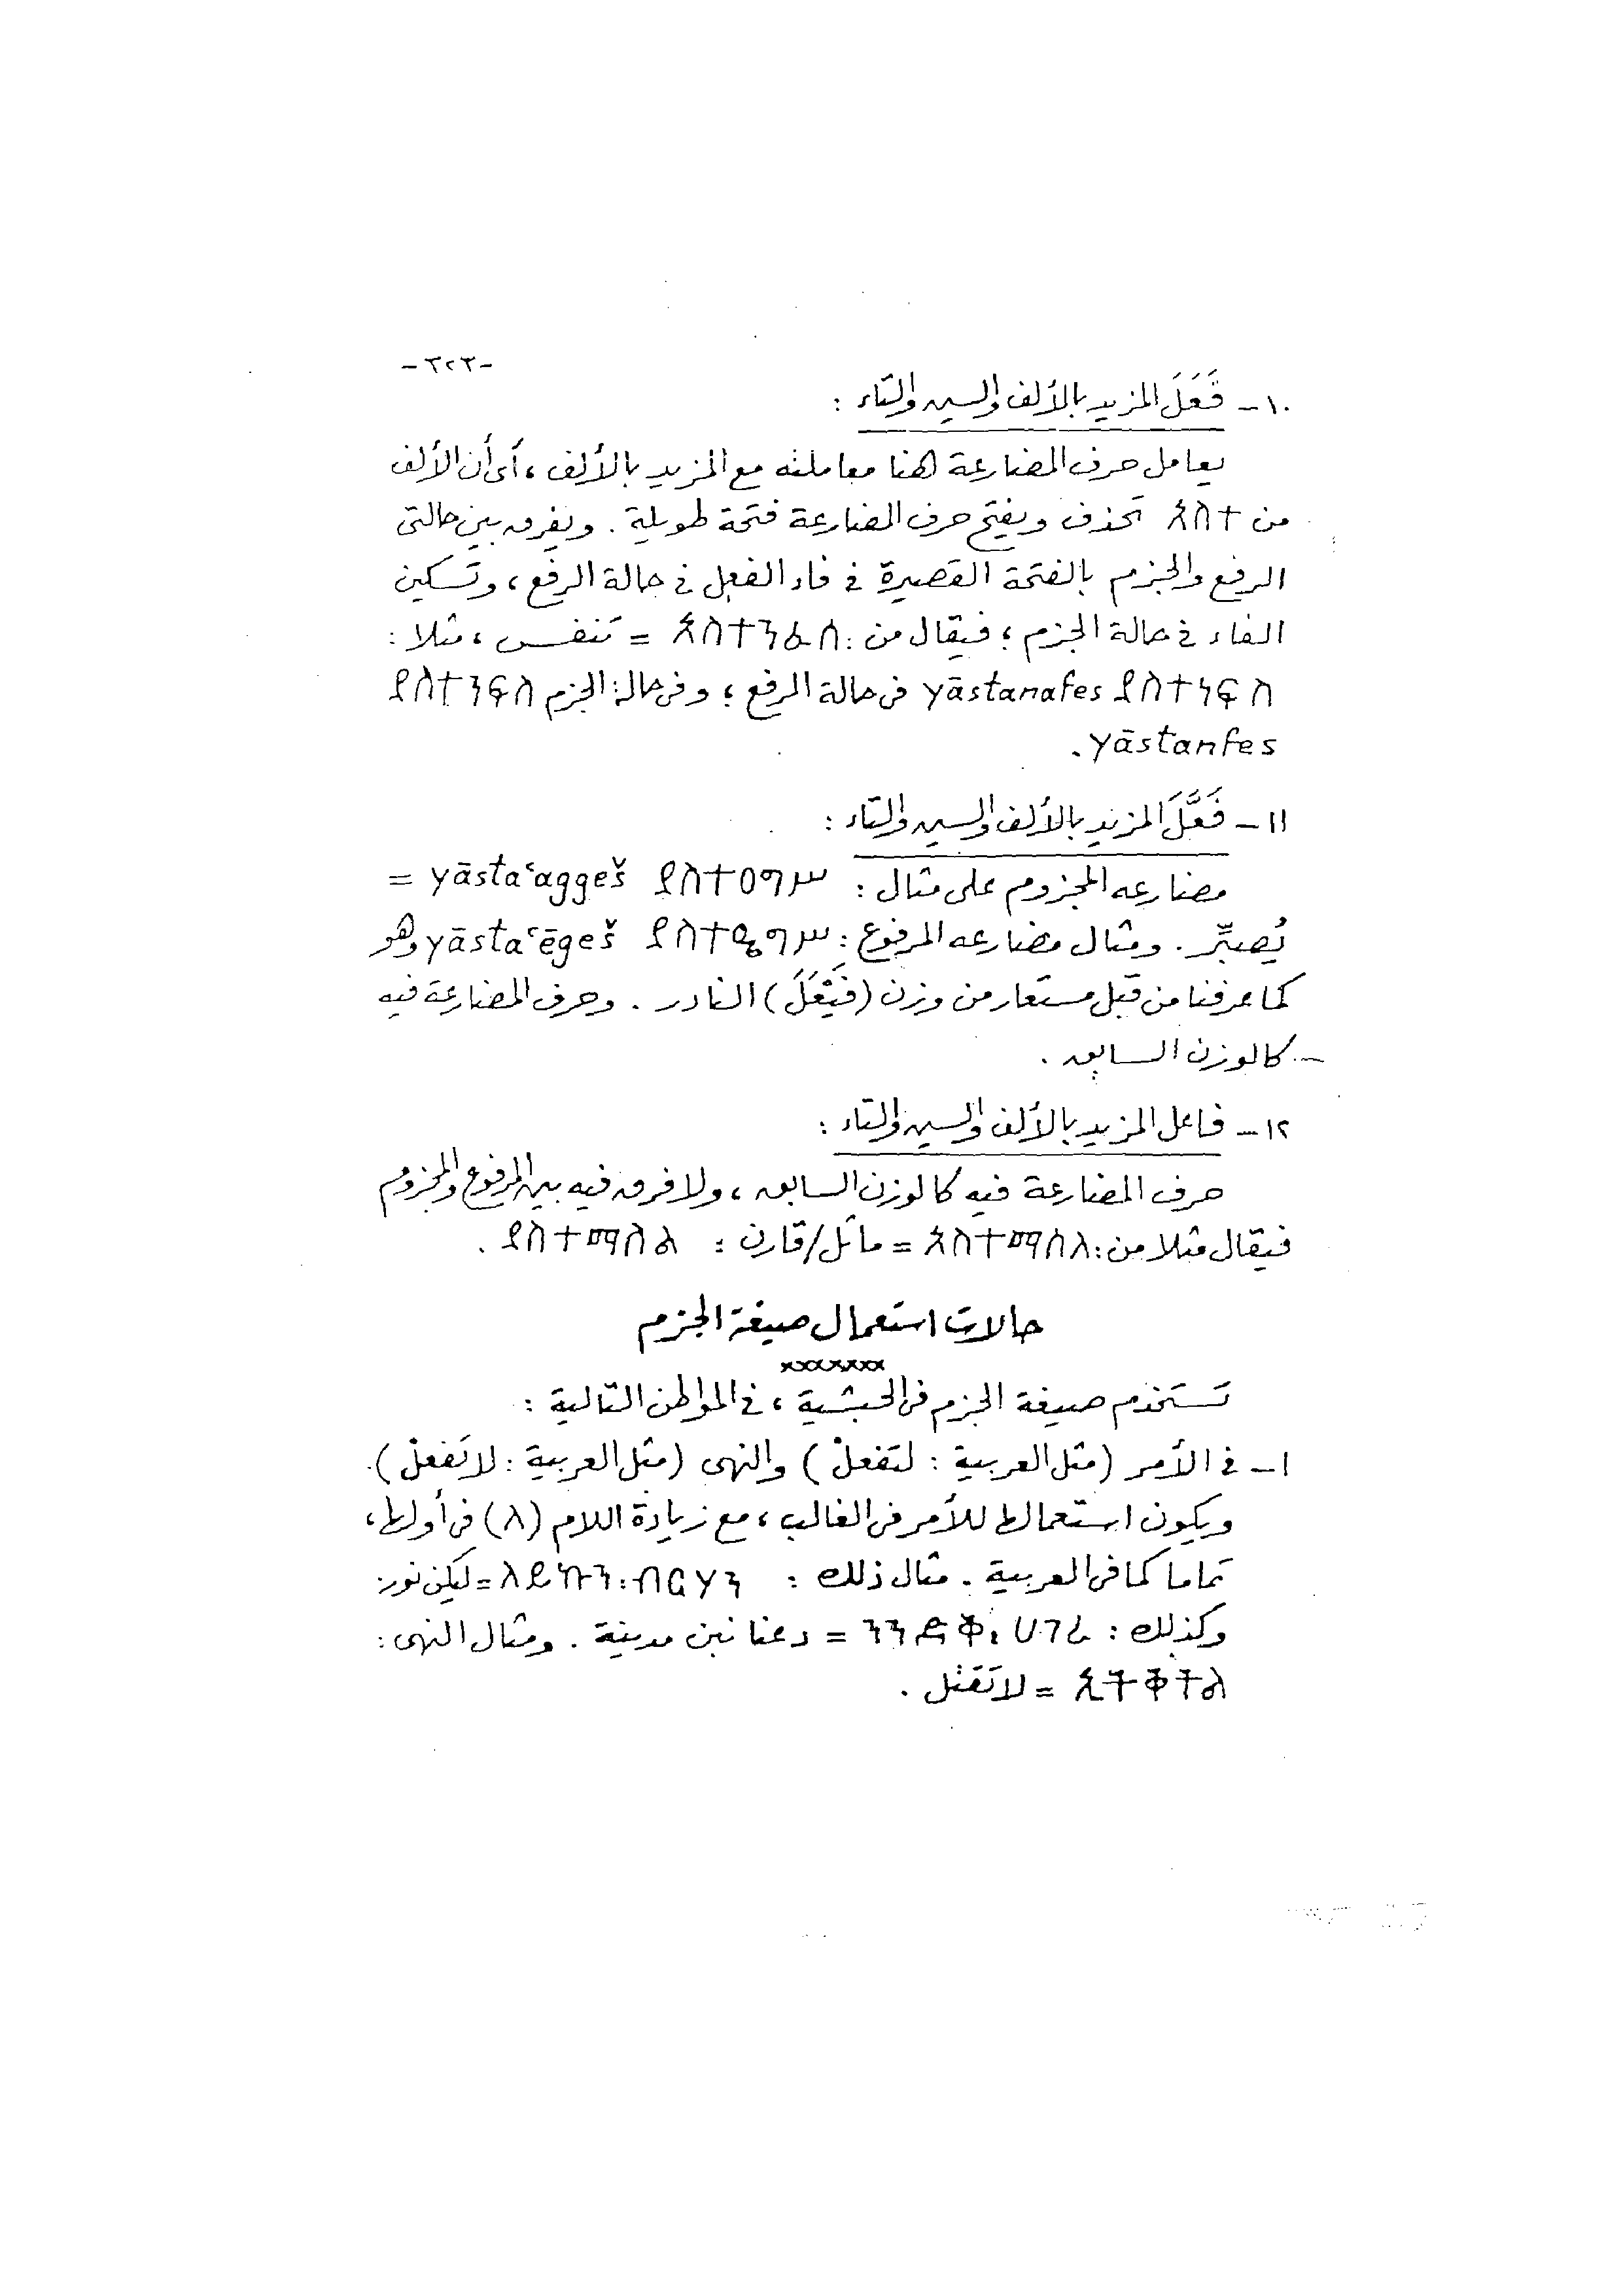 -٣٢٣-
١٠- فَعَلَ المزيد بالألف والسين والتاء :
يعامل حرف المضارعة هنا معاملته مع المزيد بالألف ، أى أن الألف
من አስተ تحذف ويفتح حرف المضارعة فتحة طويلة . ويفرق بين حالتى
الرفع والجزم بالفتحة القصيرة فى فاء الفعل فى حالة الرفع ، وتسكين
الفاء فى حالة الجزم ؛ فيقال من : አስተንፈሰ = تنفس ، مثلا :
ያስተነፍስ yāstanafes فى حالة الرفع ؛ وفى حالة الجزم ያስተንፍስ
yāstanfes.
١١- فَعَّلَ المزيد بالألف والسين والتاء :
مضارعه المجزوم على مثال : ያስተዐግሥ yāsta‘aggeš =
يُصبِّر . ومثال مضارعه المرفوع : ያስተዔግሥ yāsta‘ēgeš وهو
كما عرفنا من قبل مستعار من وزن (فَيْعَلَ) النادر . وحرف المضارعة فيه
كالوزن السابق .
١٢- فاعل المزيد بالألف والسين والتاء :
حرف المضارعة فيه كالوزن السابق ، ولا فرق فيه بين المرفوع والمجزوم
فيقال مثلا من : አስተማሰለ = ماثل/قارن : ያስተማስል .
حالات استعمال صيغة الجزم
xxxxxxx
تستخدم صيغة الجزم فى الحبشية ، فى المواطن التالية :
١- فى الأمر (مثل العربية : لتفعلْ) والنهى (مثل العربية : لا تَفعلْ).
ويكون استعمالها للأمر فى الغالب ، مع زيادة اللام (ለ) فى أولها ،
تماما كما فى العربية . مثال ذلك : ለይኩን፡ብርሃን = ليكن نور
وكذلك : ንንድቅ፡ሀገረ = دعنا نبن مدينة . ومثال النهى :
ኢትቅትል = لا تَقتل .